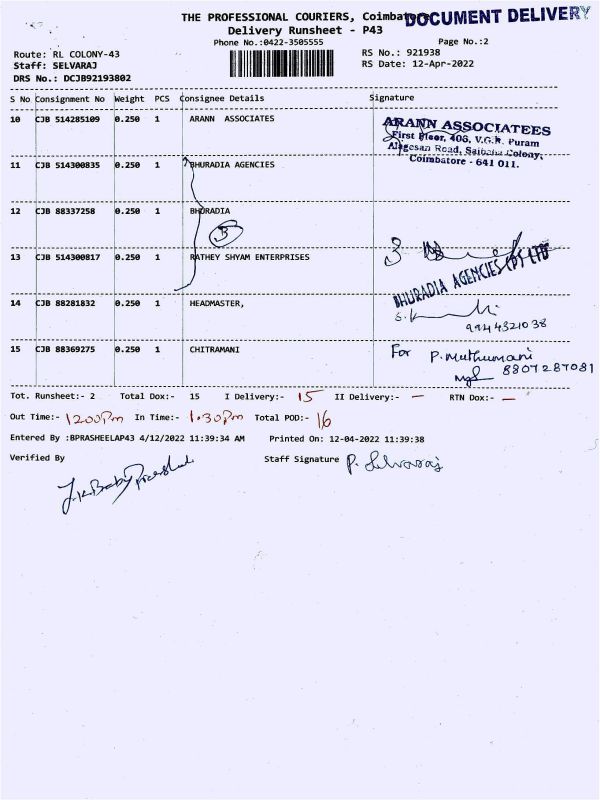 THE PROFESSIONAL COURIERS, Coimbatore
DOCUMENT DELIVERY
Delivery Runsheet - P43
Phone No.:0422-3505555
Page No.:2
Route: RL COLONY-43
RS No.: 921938
Staff: SELVARAJ
RS Date: 12-Apr-2022
DRS No.: DCJB92193802
S No Consignment No Weight PCS Consignee Details Signature
10 CJB 514285109 0.250 1 ARANN ASSOCIATES
ARANN ASSOCIATEES
First Floor, 406, V.G.R. Puram
Alagesan Road, Saibaba Colony,
Coimbatore - 641 011.
11 CJB 514300835 0.250 1 BHURADIA AGENCIES
12 CJB 88337258 0.250 1 BHURADIA
3
13 CJB 514300817 0.250 1 RATHEY SHYAM ENTERPRISES
3
BHURADIA AGENCIES (P) LTD
14 CJB 88281832 0.250 1 HEADMASTER,
9944321038
15 CJB 88369275 0.250 1 CHITRAMANI
For P. Muthumani
8807287081
Tot. Runsheet:- 2 Total Dox:- 15 I Delivery:- 15 II Delivery:- — RTN Dox:- —
Out Time:- 1200Pm In Time:- 1.30Pm Total POD:- 16
Entered By :BPRASHEELAP43 4/12/2022 11:39:34 AM Printed On: 12-04-2022 11:39:38
Verified By Staff Signature P. Selvaraj